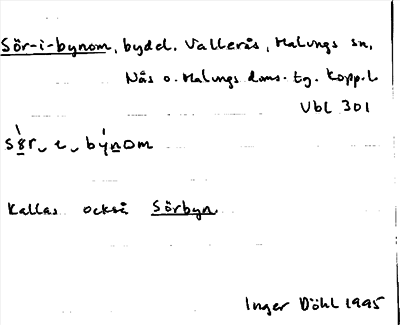 Sör-i-bynom, bydel. Vallerås, Malungs sn,
Nås o. Malungs doms. tg. Kopp. l.
Vbl 301
sör i bynom
Kallas också Sörbyn
Inger Döhl 1995